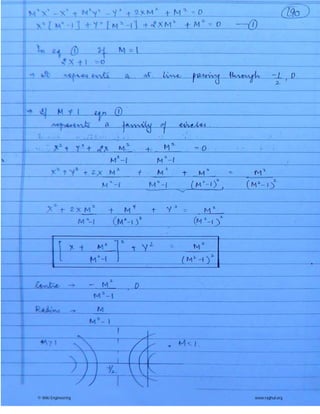 M²X² - X² + M²Y² - Y² + 2XM² + M² = 0
190
X² [M² - 1] + Y² [M² - 1] + 2XM² + M² = 0 — ①
In eq ① If M = 1
2X + 1 = 0
→ it represents a st. line passing through -1/2, 0
→ If M ≠ 1 eqn ①
represents a family of circles
X² + Y² + 2X M²/(M²-1) + M²/(M²-1) = 0
X² + Y² + 2X M²/(M²-1) + M²/(M²-1) + M⁴/(M²-1)² = M⁴/(M²-1)²
X² + 2X M²/(M²-1) + M⁴/(M²-1)² + Y² = M²/(M²-1)²
[X + M²/(M²-1)]² + Y² = M²/(M²-1)²
Centre → - M²/(M²-1), 0
Radius → M/(M²-1)
M>1
M<1
-1/2
© Wiki Engineering
www.raghul.org